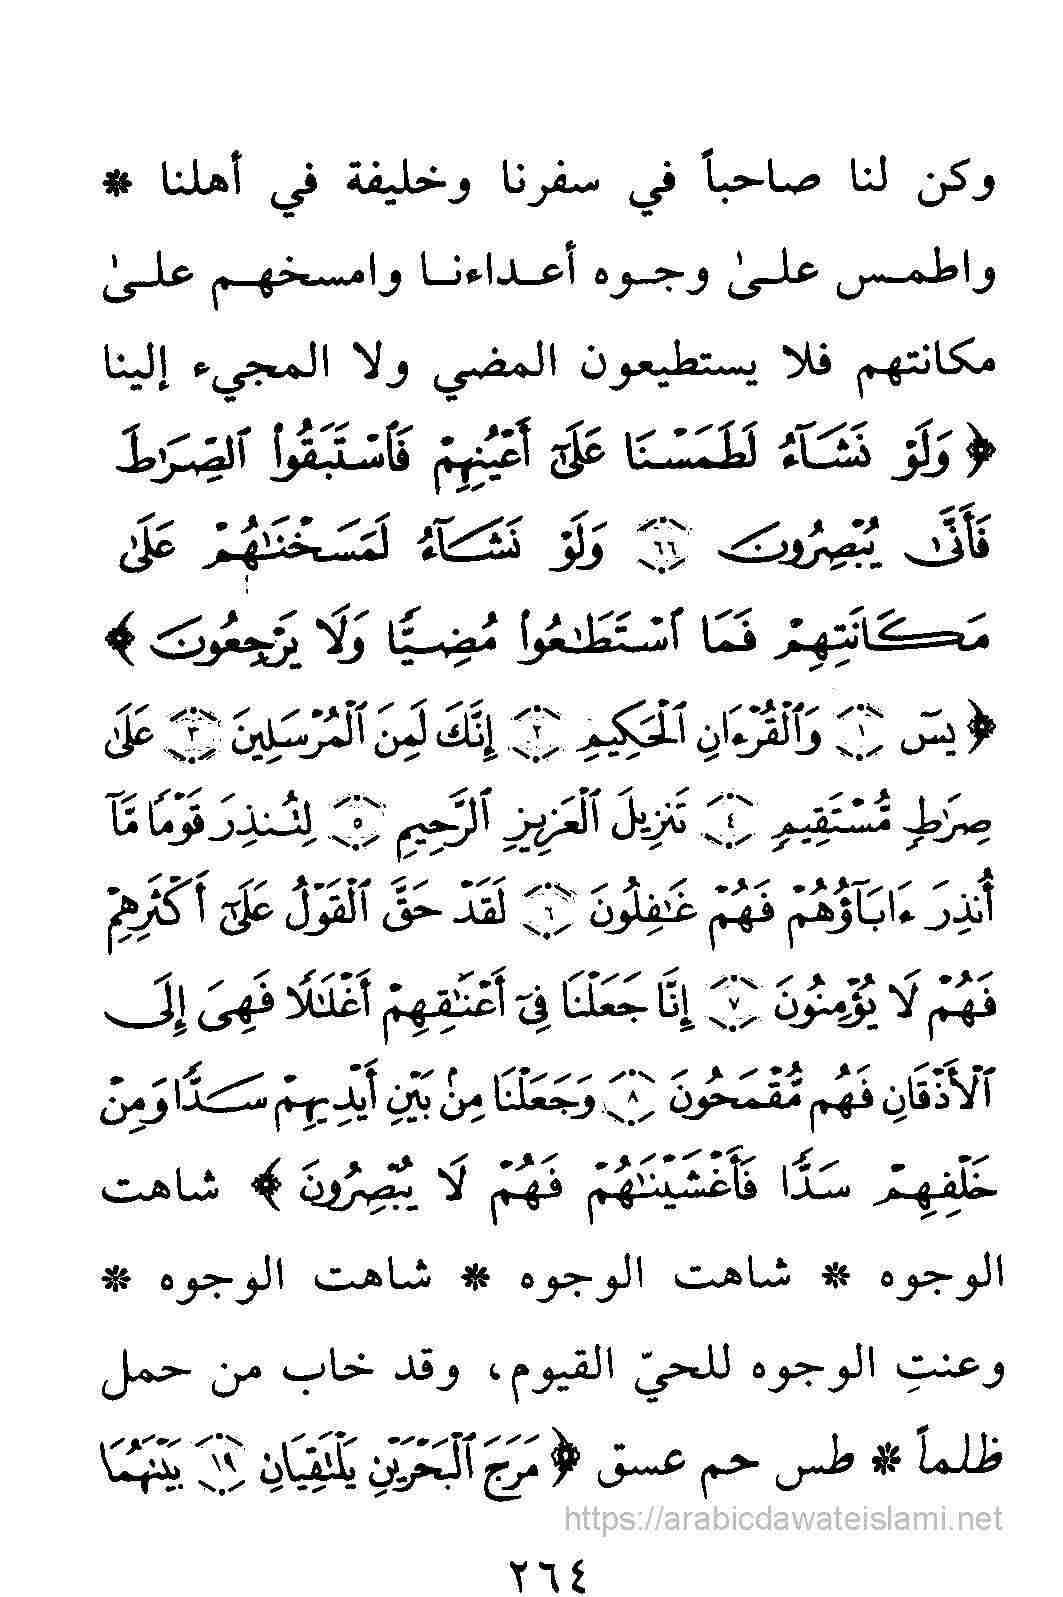 وكن لنا صاحباً في سفرنا وخليفة في أهلنا *
واطمـس علـىٰ وجـوه أعـداءنـا وامسخهـم علـىٰ
مكانتهم فلا يستطيعون المضي ولا المجيء إلينا
﴿ وَلَوْ نَشَآءُ لَطَمَسْنَا عَلَىٰٓ أَعْيُنِهِمْ فَٱسْتَبَقُوا۟ ٱلصِّرَٰطَ
فَأَنَّىٰ يُبْصِرُونَ ۝٦٦ وَلَوْ نَشَآءُ لَمَسَخْنَٰهُمْ عَلَىٰ
مَكَانَتِهِمْ فَمَا ٱسْتَطَٰعُوا۟ مُضِيًّا وَلَا يَرْجِعُونَ ﴾
﴿ يسٓ ۝١ وَٱلْقُرْءَانِ ٱلْحَكِيمِ ۝٢ إِنَّكَ لَمِنَ ٱلْمُرْسَلِينَ ۝٣ عَلَىٰ
صِرَٰطٍ مُّسْتَقِيمٍ ۝٤ تَنزِيلَ ٱلْعَزِيزِ ٱلرَّحِيمِ ۝٥ لِتُنذِرَ قَوْمًا مَّآ
أُنذِرَ ءَابَآؤُهُمْ فَهُمْ غَٰفِلُونَ ۝٦ لَقَدْ حَقَّ ٱلْقَوْلُ عَلَىٰٓ أَكْثَرِهِمْ
فَهُمْ لَا يُؤْمِنُونَ ۝٧ إِنَّا جَعَلْنَا فِىٓ أَعْنَٰقِهِمْ أَغْلَٰلًا فَهِىَ إِلَى
ٱلْأَذْقَانِ فَهُم مُّقْمَحُونَ ۝٨ وَجَعَلْنَا مِنۢ بَيْنِ أَيْدِيهِمْ سَدًّا وَمِنْ
خَلْفِهِمْ سَدًّا فَأَغْشَيْنَٰهُمْ فَهُمْ لَا يُبْصِرُونَ ﴾ شاهت
الوجوه * شاهت الوجوه * شاهت الوجوه *
وعنتِ الوجوه للحيّ القيوم، وقد خاب من حمل
ظلماً * طس حم عسق ﴿ مَرَجَ ٱلْبَحْرَيْنِ يَلْتَقِيَانِ ۝١٩ بَيْنَهُمَا
https://arabicdawateislami.net
٢٦٤